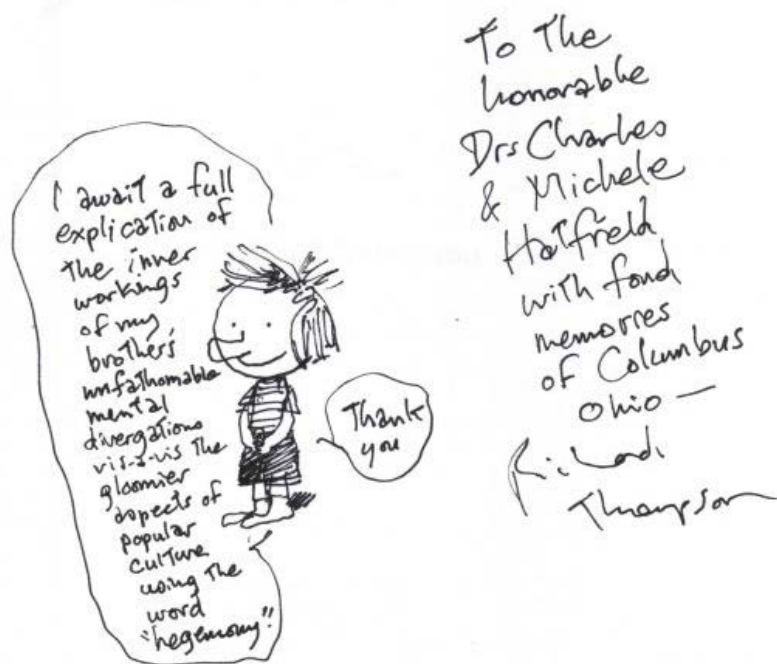 I await a full
explication of
the inner
workings
of my
brother's
unfathomable
mental
divergations
vis-à-vis the
gloomier
aspects of
popular
culture
using the
word
"hegemony."
Thank
you
To The
honorable
Drs Charles
& Michele
Hatfield
with fond
memories
of Columbus
Ohio —
Richard
Thompson